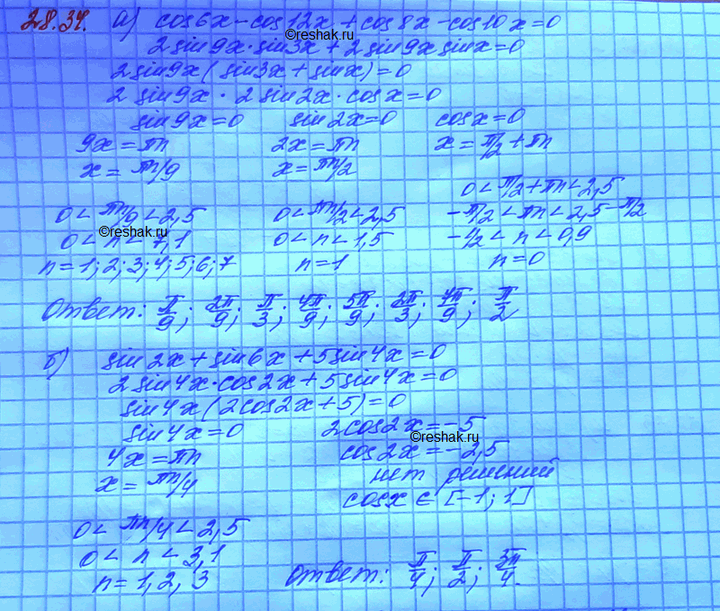 28.34. а) cos6x - cos12x + cos8x - cos10x = 0
©reshak.ru
2sin9x·sin3x + 2sin9x sinx = 0
2sin9x(sin3x + sinx) = 0
2 sin9x · 2 sin2x · cosx = 0
sin9x = 0 sin2x = 0 cosx = 0
9x = πn 2x = πn x = π/2 + πn
x = πn/9 x = πn/2
0 < π/2 + πn < 2,5
0 < πn/9 < 2,5 0 < πn/2 < 2,5 -π/2 < πn < 2,5 - π/2
0 < n < 7,1 0 < n < 1,5 -1/2 < n < 0,9
©reshak.ru
n = 1; 2; 3; 4; 5; 6; 7 n = 1 n = 0
Ответ: π/9; 2π/9; π/3; 4π/9; 5π/9; 2π/3; 7π/9; π/2
б) sin2x + sin6x + 5sin4x = 0
2sin4x·cos2x + 5sin4x = 0
sin4x(2cos2x + 5) = 0
sin4x = 0 2cos2x = -5
©reshak.ru
4x = πn cos2x = -2,5
x = πn/4 нет решений
cosx ∈ [-1; 1]
0 < πn/4 < 2,5
0 < n < 3,1
n = 1, 2, 3 Ответ: π/4; π/2; 3π/4.